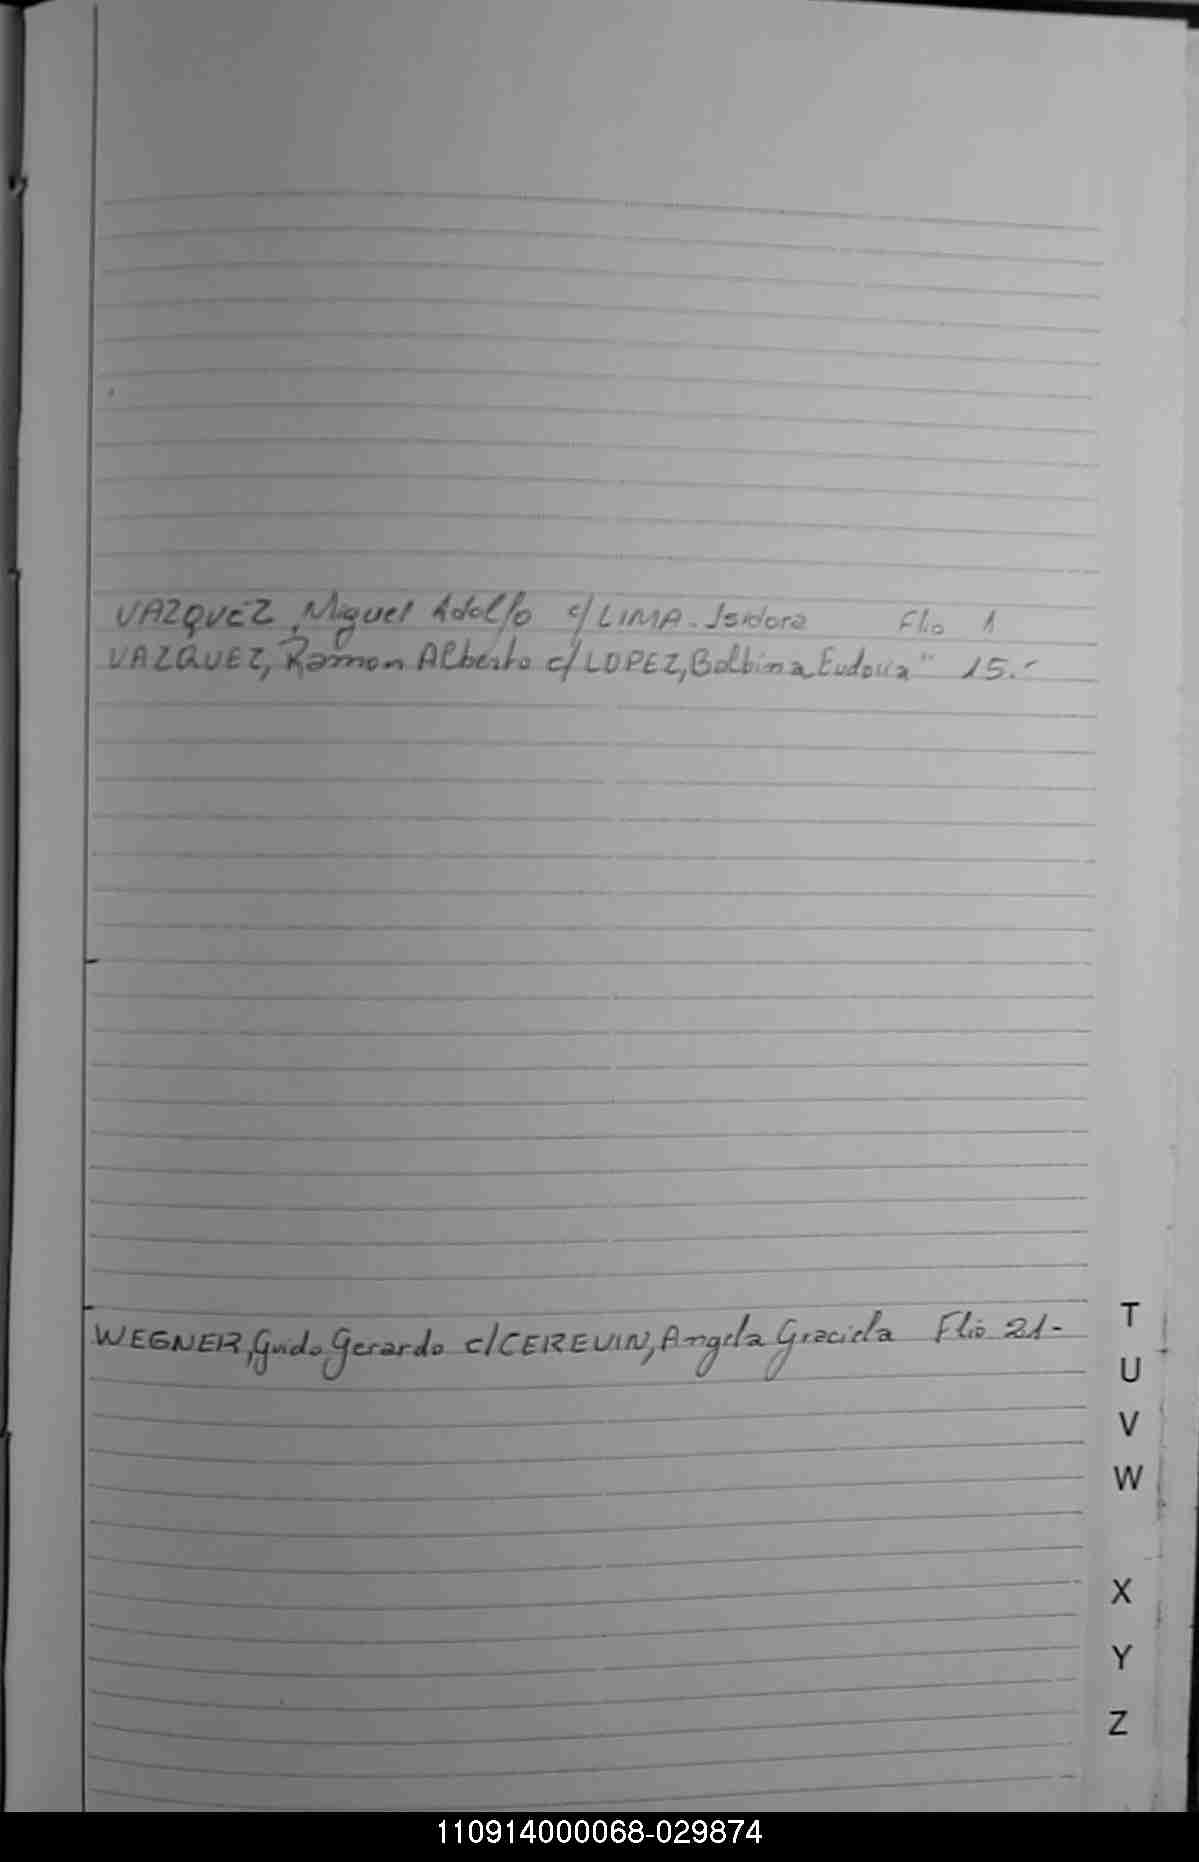 VAZQUEZ, Miguel Adolfo c/ LIMA. Isidora Flio 1
VAZQUEZ, Ramon Alberto c/ LOPEZ, Balbina Eudocia " 15.-
WEGNER, Guido Gerardo c/ CEREVIN, Angela Graciela Flio 21-
T
U
V
W
X
Y
Z
110914000068-029874